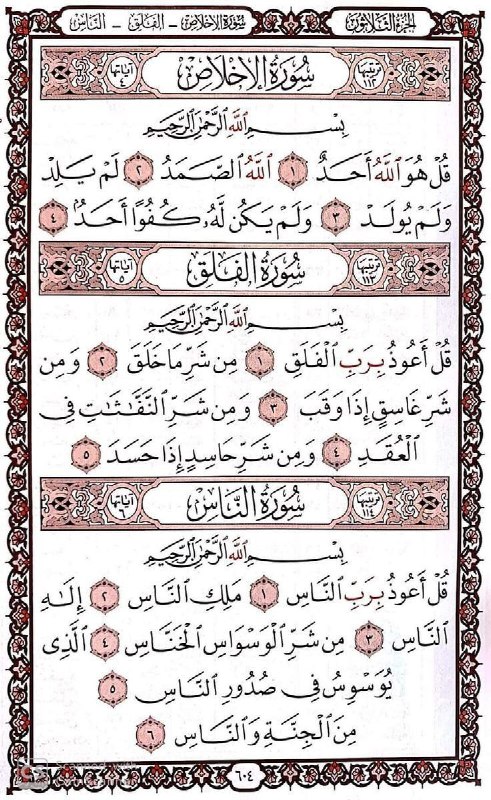 الجزء الثلاثون
سورة الإخلاص - الفلق - الناس
ترتيبها ١١٢ سُورَةُ الإِخْلَاصِ آياتها ٤
بِسْمِ اللَّهِ الرَّحْمَٰنِ الرَّحِيمِ
قُلْ هُوَ اللَّهُ أَحَدٌ ١ اللَّهُ الصَّمَدُ ٢ لَمْ يَلِدْ
وَلَمْ يُولَدْ ٣ وَلَمْ يَكُن لَّهُۥ كُفُوًا أَحَدٌۢ ٤
ترتيبها ١١٣ سُورَةُ الفَلَقِ آياتها ٥
بِسْمِ اللَّهِ الرَّحْمَٰنِ الرَّحِيمِ
قُلْ أَعُوذُ بِرَبِّ الْفَلَقِ ١ مِن شَرِّ مَا خَلَقَ ٢ وَمِن
شَرِّ غَاسِقٍ إِذَا وَقَبَ ٣ وَمِن شَرِّ النَّفَّٰثَٰتِ فِى
الْعُقَدِ ٤ وَمِن شَرِّ حَاسِدٍ إِذَا حَسَدَ ٥
ترتيبها ١١٤ سُورَةُ النَّاسِ آياتها ٦
بِسْمِ اللَّهِ الرَّحْمَٰنِ الرَّحِيمِ
قُلْ أَعُوذُ بِرَبِّ النَّاسِ ١ مَلِكِ النَّاسِ ٢ إِلَٰهِ
النَّاسِ ٣ مِن شَرِّ الْوَسْوَاسِ الْخَنَّاسِ ٤ الَّذِى
يُوَسْوِسُ فِى صُدُورِ النَّاسِ ٥
مِنَ الْجِنَّةِ وَالنَّاسِ ٦
٦٠٤